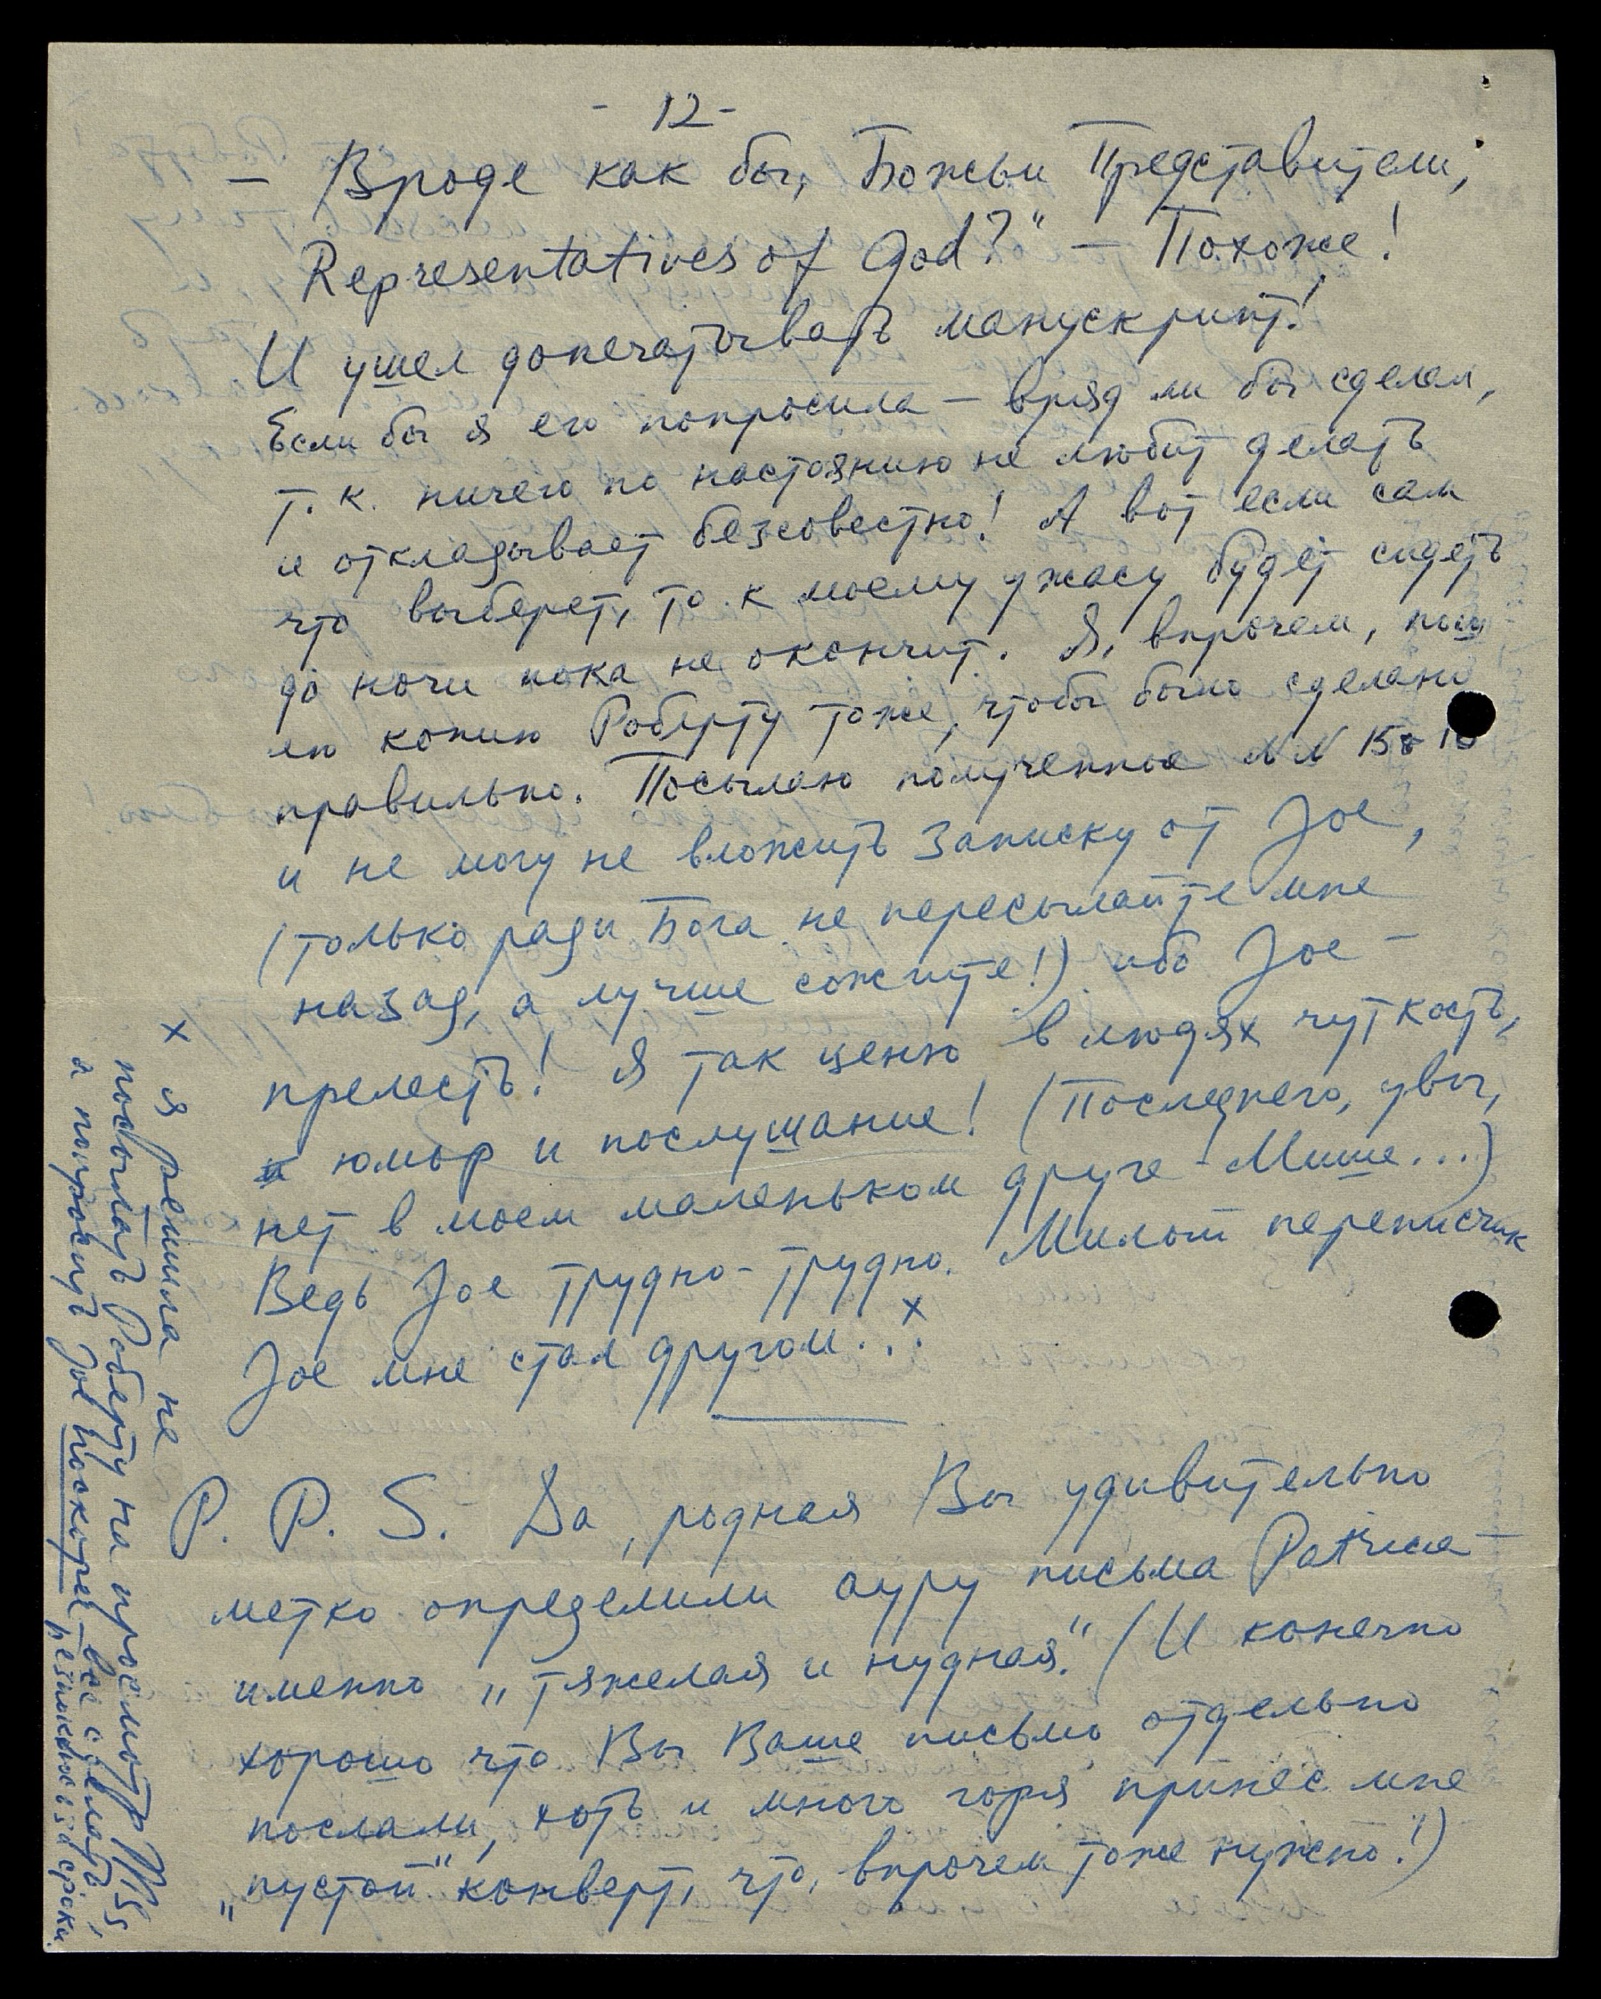 - 12 -
— Вроде как бы, Божьи Представители,
Representatives of God?" — Похоже!
И ушел допечатывать манускрипт!
Если бы я его попросила — вряд ли бы сделал,
т. к. ничего по настоянию не любит делать
и откладывает безсовестно! А вот если сам
что выберет, то к моему ужасу будет сидеть
до ночи пока не окончит. Я, впрочем, пош
лю копию Роберту тоже, чтобы было сделано
правильно. Посылаю полученное NN 15
и не могу не вложить записку от Joe,
(только ради Бога не пересылайте мне
назад, а лучше сожгите!) ибо Joe —
прелесть! Я так ценю в людях чуткость,
юмор и послушание! (Последнего, увы,
нет в моем маленьком друге - Мише...)
Ведь Joe трудно-трудно. Милый переписчик
Joe мне стал другом... x
P. P. S. Да, родная Вы удивительно
метко определили ауру письма Patricia —
именно „тяжелая и нудная." (И конечно
хорошо что Вы Ваше письмо отдельно
послали, хоть и много горя принес мне
„пустой" конверт, что, впрочем тоже нужно!)
x Я решила не
посылать Роберту на просмотр MSS,
а попросить Joe поскорее — все сделать,